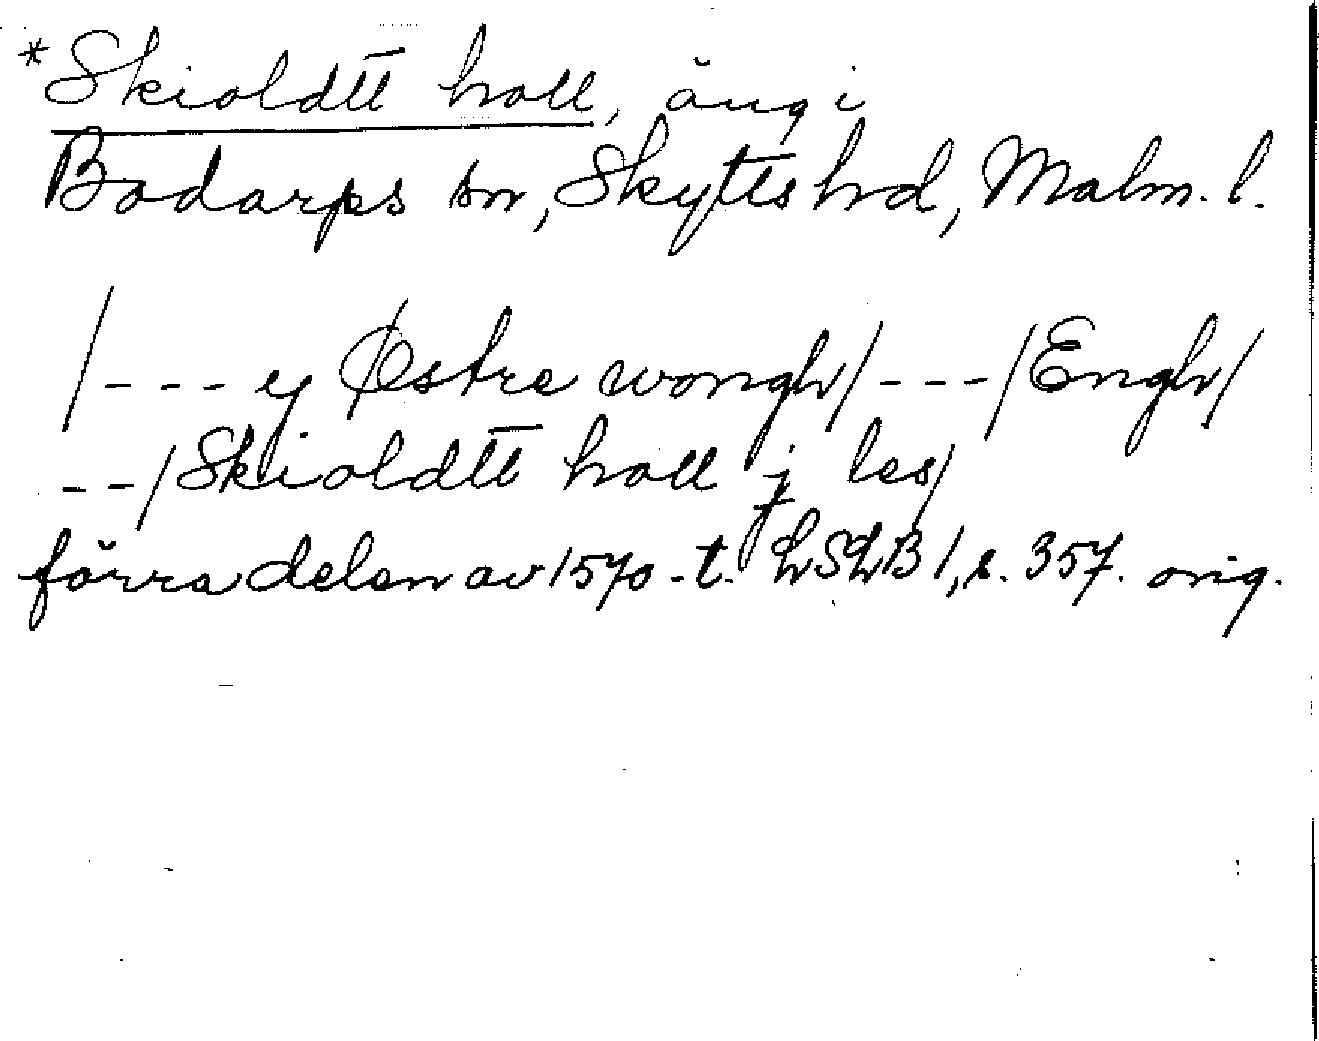 *Skioldtt holl, äng i
Bodarps sn, Skytts hd, Malm. l.
/---ej Østre wongh/---/Engh/
--/Skioldtt holl j les/
förra delen av 1570-t. LSLB 1, s. 357. orig.